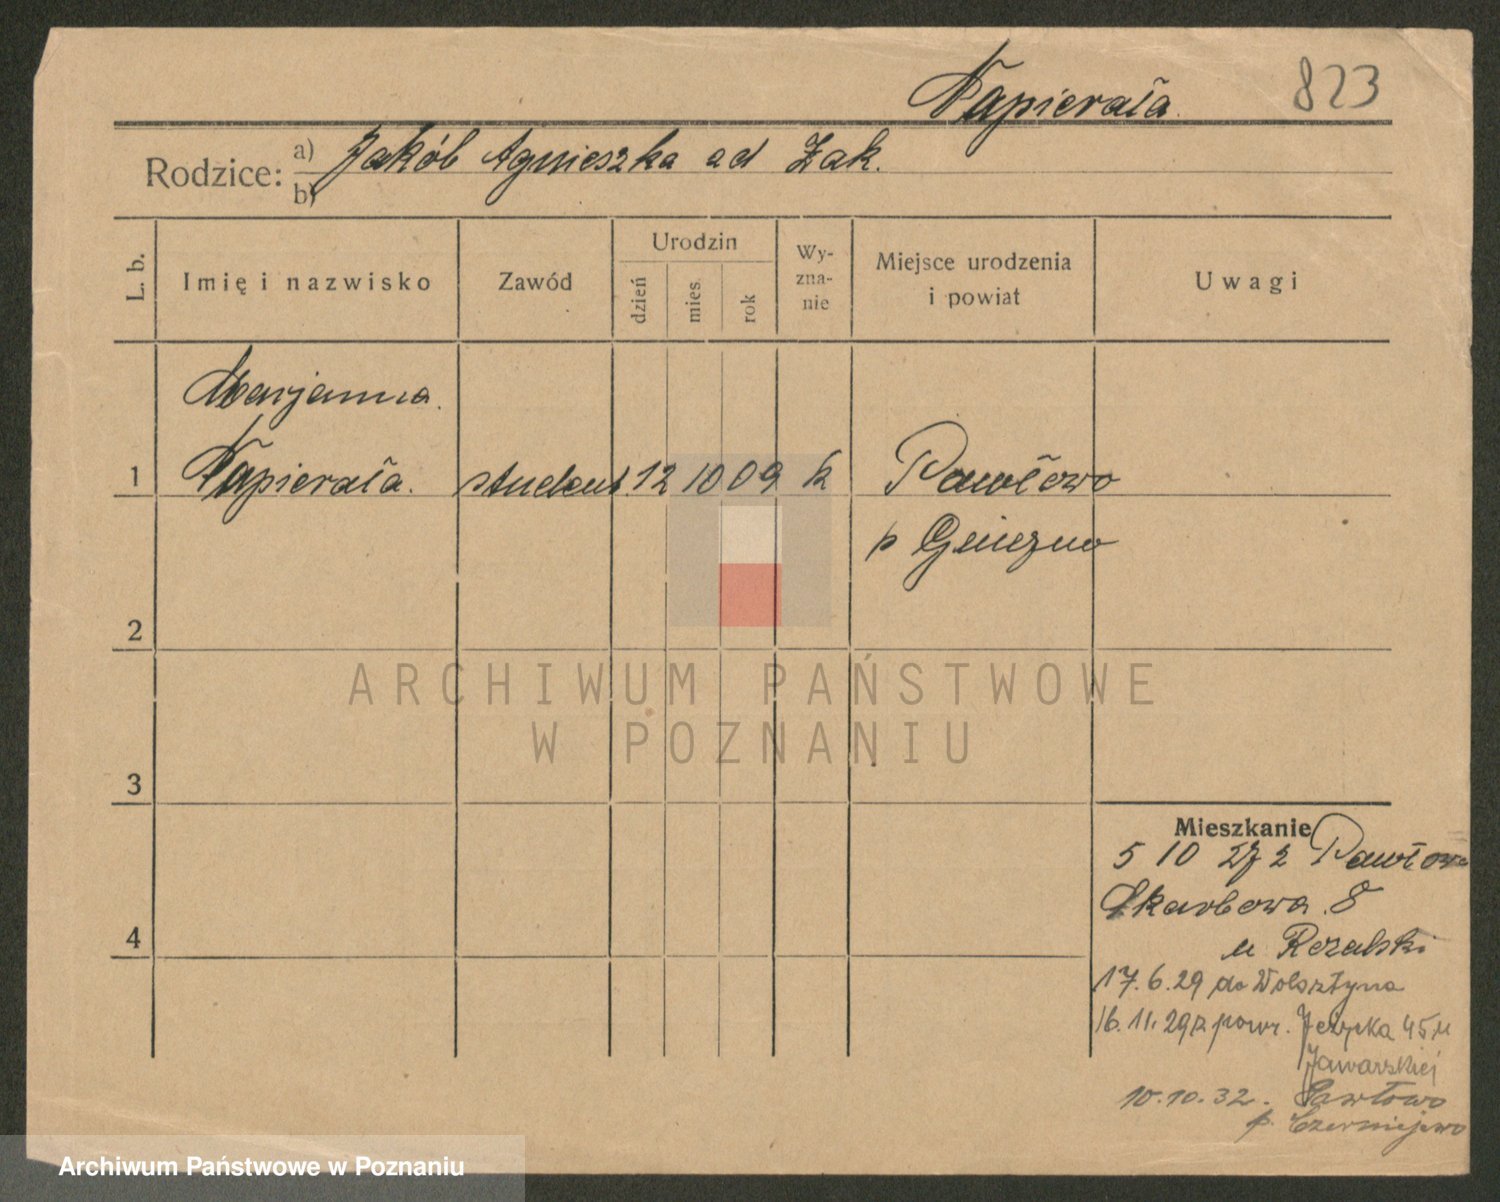 Napierała. 823
Rodzice: a) Jakób Agnieszka ad Żak.
b)
L. b.
Imię i nazwisko
Zawód
Urodzin
dzień
mies.
rok
Wy-
zna-
nie
Miejsce urodzenia
i powiat
Uwagi
Marjanna.
1 Napierała. student 12 10 09 k Pawłowo
p Gniezno
2
3
4
Mieszkanie
5 10 27 z Pawłowa
Skarbowa 8
u Rezalski
17.6.29 do Wolsztyna
16.11.29 z powr. Jeżycka 45 u
Jaworskiej
10.10.32. Pawłowo
p. Czerniejewo
ARCHIWUM PAŃSTWOWE
W POZNANIU
Archiwum Państwowe w Poznaniu